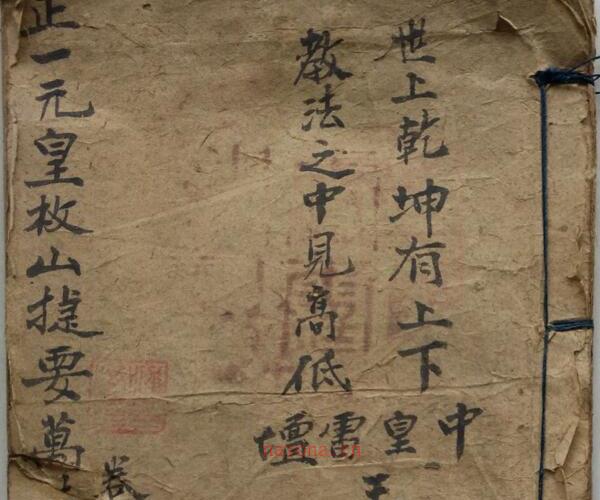 世上乾坤有上下
教法之中見高低
中皇雷壇
卷
正一元皇枚山捷要萬